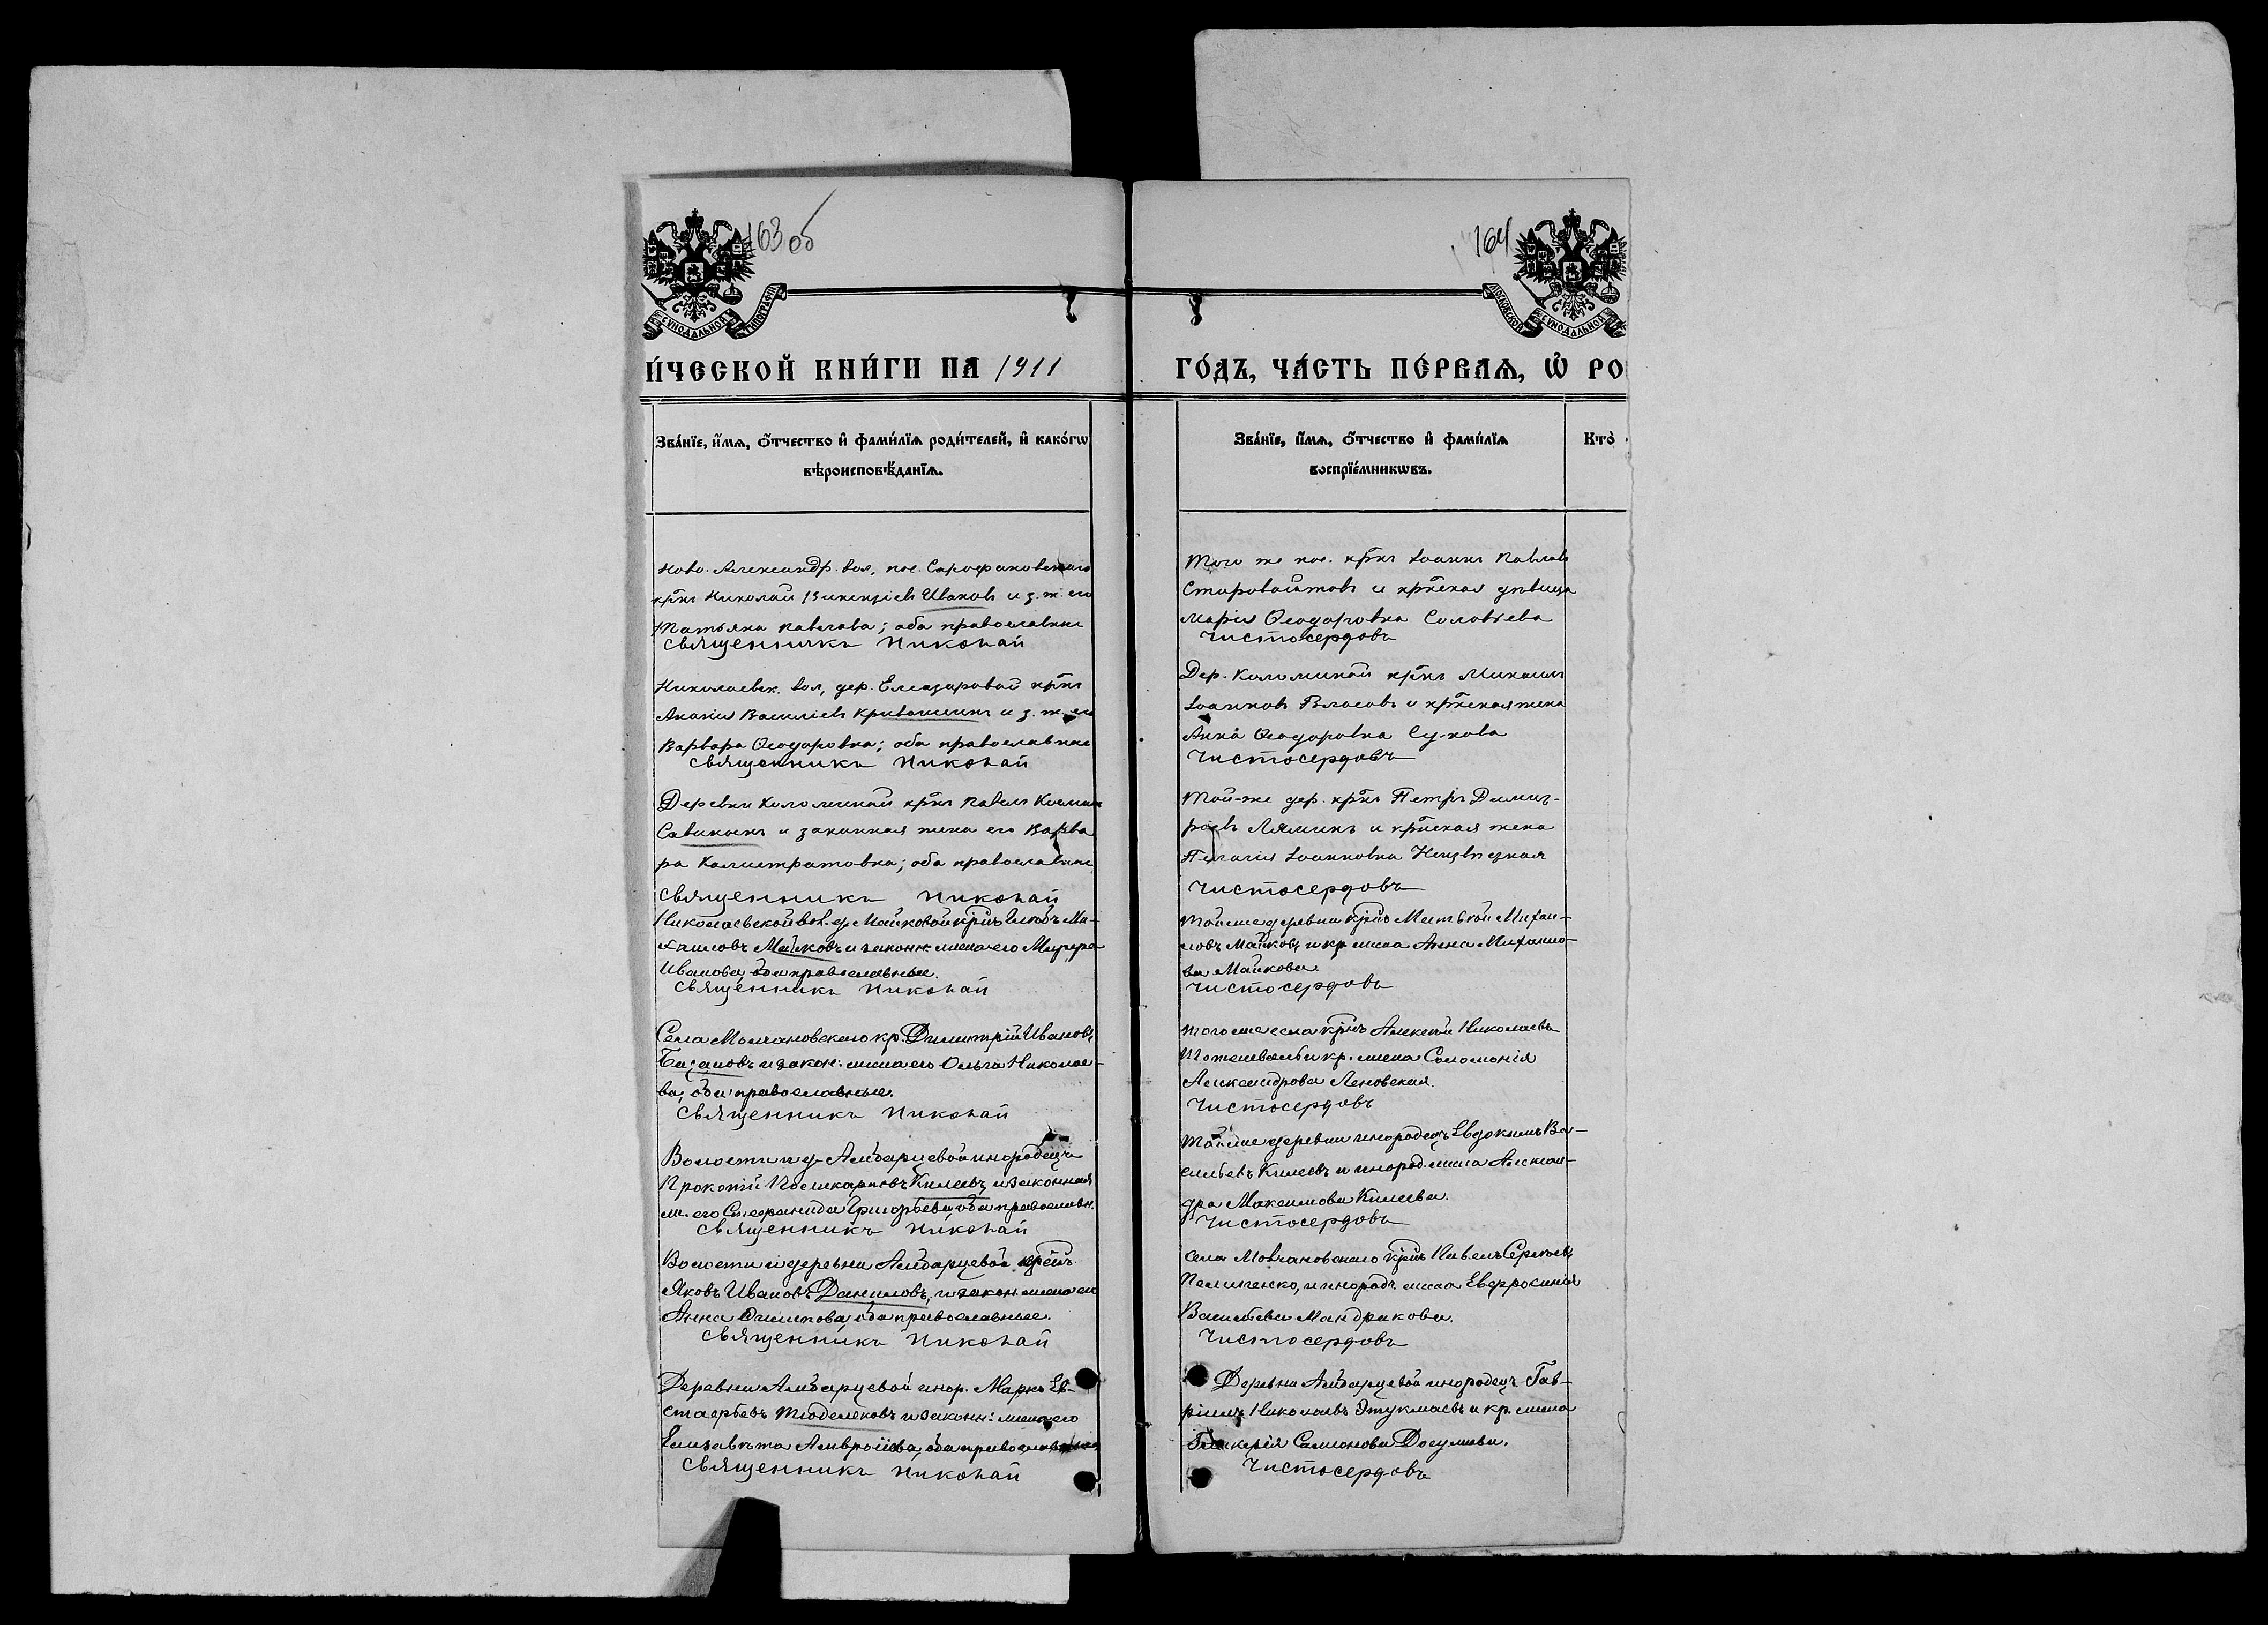 163 об
ТИПОГРАФІИ
СУНОДАЛЬНОЙ
И́ЧЕСКОЙ КНИ́ГИ НА 1911
Зва́нїе, и́мѧ, ѻ҆́тчество и҆ фами́лїѧ роди́телей, и҆ како́гѡ
вѣроисповѣ́данїѧ.
Ново-Александр. вол., пос. Сарафановскаго
крнъ Николай Викентіевъ Иваковъ и з. ж. его
Татьяна Павлова; оба православные
Священникъ Николай
Николаевск. вол., дер. Елеазаровой крнъ
Ананія Василіевъ Кривошеинъ и з. ж. его
Варвара Ѳеодоровна; оба православные
Священникъ Николай
Деревни Коломиной крнъ Павелъ Космин
Савинокъ и законная жена его Варва
ра Калистратовна; оба православные
Священникъ Николай
Николаевской вол. д. Майковой крнъ Ми-
хаиловъ Майковъ и законн. жена его
Иванова, оба православные.
Священникъ Николай
Села Молчановскаго кр. Димитрій Ивановъ
и закон: жена его Ольга Николае-
ва, оба православные.
Священникъ Николай
Волости и д. Амбарцевой инородецъ
Прокопій Поликарповъ Килеевъ и законная
ж. его Стефанида Григорьева, оба православн.
Священникъ Николай
Волости и деревни Амбарцевой
Яковъ Ивановъ Даниловъ, и закон. жена его
Анна Филипова, оба православные.
Священникъ Николай
Деревни Амбарцевой инор. Марко Ев-
стафьевъ Тюделековъ и законн: жена его
Елизавета Амвросіева, оба православные
Священникъ Николай
164
МОСКОВСКОЙ
СУНОДАЛЬНОЙ
ГО́ДЪ, ЧА́СТЬ ПЕ́РВАѦ, Ѡ҆ РО
Зва́нїе, и́мѧ, ѻ҆́тчество и҆ фами́лїѧ
воспрїе́мникѡвъ.
Кто̀
Того же пос. крнъ Іоаннъ Павловъ
Старовойтовъ и крнская дѣвица
Марія Ѳеодоровна Соловьева
Чистосердовъ
Дер. Коломиной крнъ Михаилъ
Іоанновъ Власовъ и крнская жена
Анна Ѳеодоровна Сухова
Чистосердовъ
Той-же дер. крнъ Петръ Димит-
ріевъ Ляминъ и крнская жена
Пелагія Іоанновна Неизвѣстная
Чистосердовъ
Той же деревни крнъ Матвѣй Михаи-
ловъ Майковъ и кр. жена Анна Михаило-
ва Майкова.
Чистосердовъ
Того же села крнъ Алексѣй Николаевъ
и кр. жена Соломонія
Александрова Леновская.
Чистосердовъ
Той же деревни инородецъ Евдокимъ Ва-
сильевъ Килеевъ и инород. жена Алексан-
дра Максимова Килеева.
Чистосердовъ
Села Молчановскаго крнъ Павелъ Сергѣевъ
Пелипенко, и инородч. жена Евфросинія
Васильева Мандракова.
Чистосердовъ
Деревни Амбарцевой инородецъ Гав-
ріилъ Николаевъ Этукмаевъ и кр. жена
Гликерія Самсонова Досужева.
Чистосердовъ